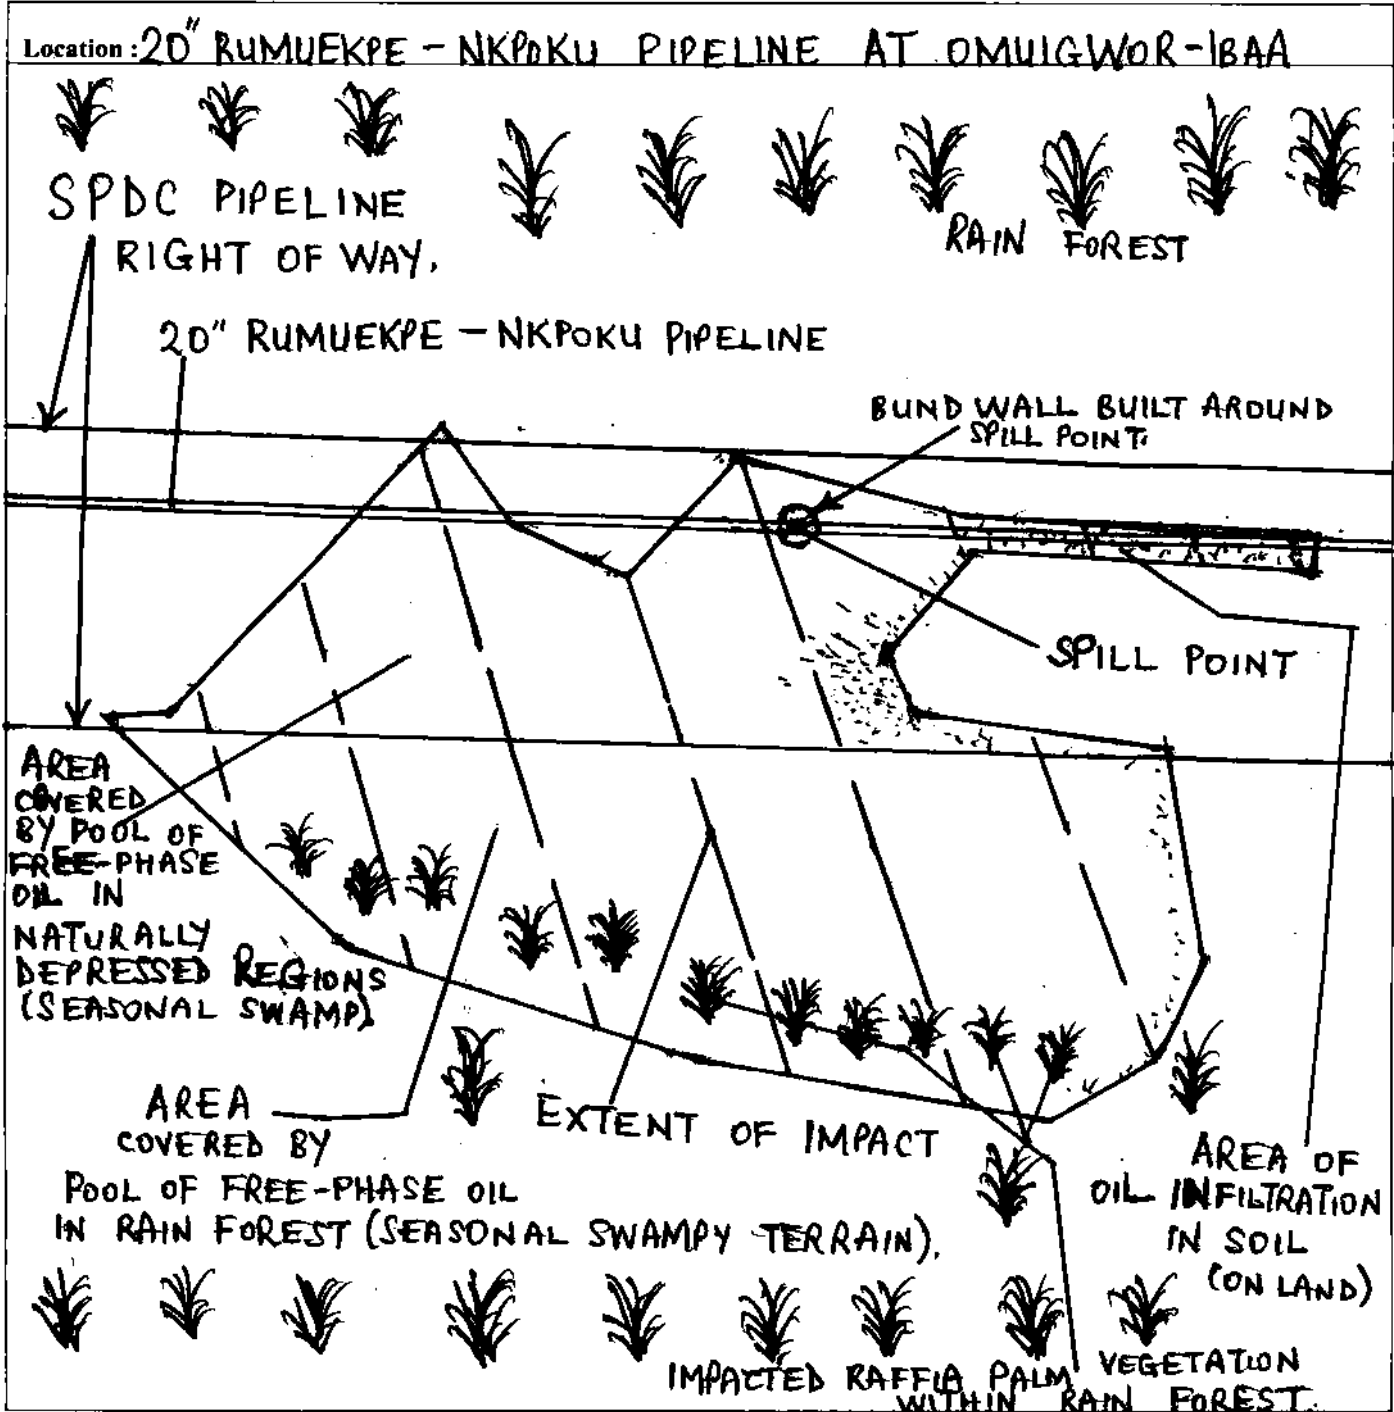 Location : 20" RUMUEKPE - NKPOKU PIPELINE AT OMUIGWOR-IBAA
SPDC PIPELINE
RIGHT OF WAY.
RAIN FOREST
20" RUMUEKPE - NKPOKU PIPELINE
BUND WALL BUILT AROUND
SPILL POINT.
SPILL POINT
AREA
COVERED
BY POOL OF
FREE-PHASE
OIL IN
NATURALLY
DEPRESSED REGIONS
(SEASONAL SWAMP)
AREA
COVERED BY
POOL OF FREE-PHASE OIL
IN RAIN FOREST (SEASONAL SWAMPY TERRAIN).
EXTENT OF IMPACT
AREA OF
OIL INFILTRATION
IN SOIL
(ON LAND)
IMPACTED RAFFIA PALM VEGETATION
WITHIN RAIN FOREST.